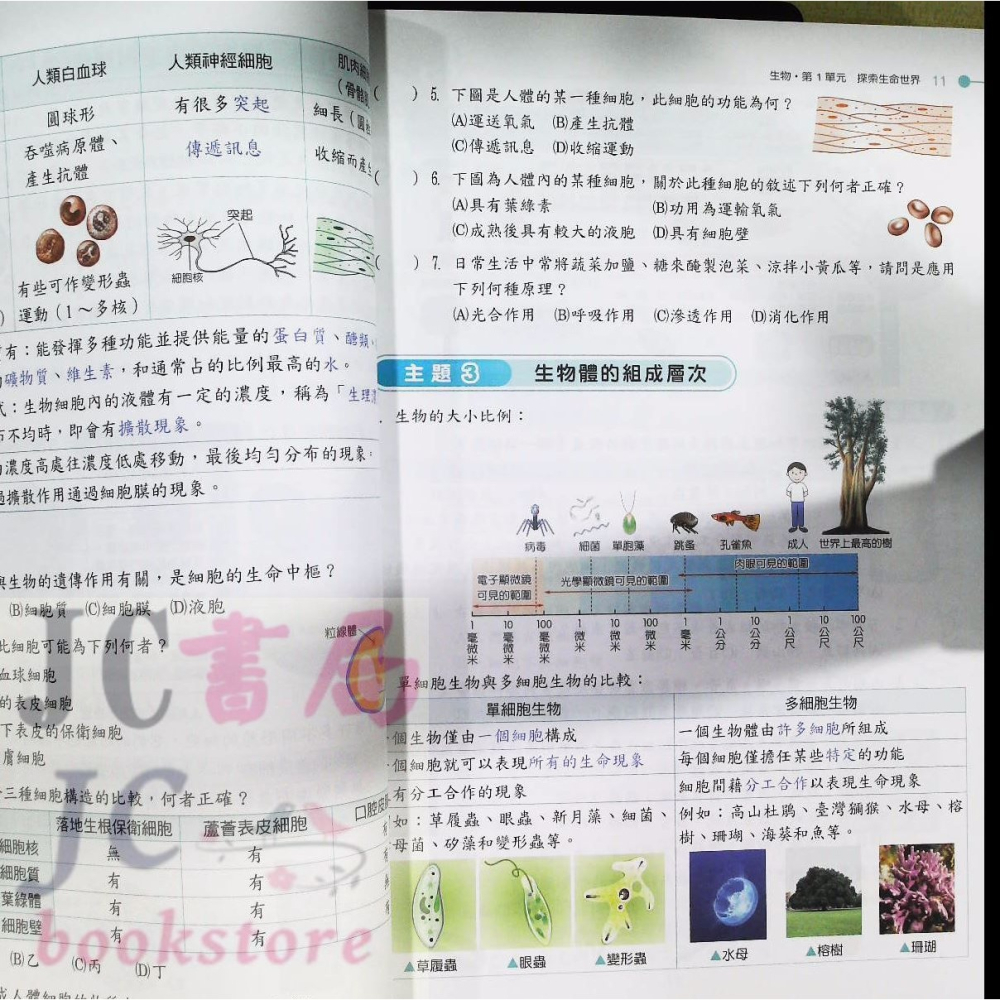 人類白血球
人類神經細胞
圓球形
有很多突起
細長（圓
吞噬病原體、
產生抗體
傳遞訊息
收縮而產生
突起
細胞核
有些可作變形蟲
運動（1～多核）
有：能發揮多種功能並提供能量的蛋白質、醣類、
礦物質、維生素，和通常占的比例最高的水。
式：生物細胞內的液體有一定的濃度，稱為「生理
布不均時，即會有擴散現象。
濃度高處往濃度低處移動，最後均勻分布的現象。
過擴散作用通過細胞膜的現象。
與生物的遺傳作用有關，是細胞的生命中樞？
(B)細胞質 (C)細胞膜 (D)液胞
此細胞可能為下列何者？
粒線體
血球細胞
的表皮細胞
下表皮的保衛細胞
膚細胞
三種細胞構造的比較，何者正確？
落地生根保衛細胞 蘆薈表皮細胞 口腔皮
細胞核 無 有
細胞質 有 有
葉綠體 有 有
細胞壁 有 有
(B)乙 (C)丙 (D)丁
JC書局
JC
bookstore
生物・第1單元 探索生命世界 11
) 5. 下圖是人體的某一種細胞，此細胞的功能為何？
(A)運送氧氣 (B)產生抗體
(C)傳遞訊息 (D)收縮運動
) 6. 下圖為人體內的某種細胞，關於此種細胞的敘述下列何者正確？
(A)具有葉綠素 (B)功用為運輸氧氣
(C)成熟後具有較大的液胞 (D)具有細胞壁
) 7. 日常生活中常將蔬菜加鹽、糖來醃製泡菜、涼拌小黃瓜等，請問是應用
下列何種原理？
(A)光合作用 (B)呼吸作用 (C)滲透作用 (D)消化作用
主題3 生物體的組成層次
生物的大小比例：
病毒 細菌 單胞藻 跳蚤 孔雀魚 成人 世界上最高的樹
肉眼可見的範圍
電子顯微鏡
可見的範圍
光學顯微鏡可見的範圍
1毫微米 10毫微米 100毫微米 1微米 10微米 100微米 1毫米 1公分 10公分 1公尺 10公尺 100公尺
單細胞生物與多細胞生物的比較：
單細胞生物 多細胞生物
個生物僅由一個細胞構成 一個生物體由許多細胞所組成
個細胞就可以表現所有的生命現象 每個細胞僅擔任某些特定的功能
有分工合作的現象 細胞間藉分工合作以表現生命現象
如：草履蟲、眼蟲、新月藻、細菌、
母菌、矽藻和變形蟲等。
例如：高山杜鵑、臺灣獼猴、水母、榕
樹、珊瑚、海葵和魚等。
▲草履蟲 ▲眼蟲 ▲變形蟲 ▲水母 ▲榕樹 ▲珊瑚